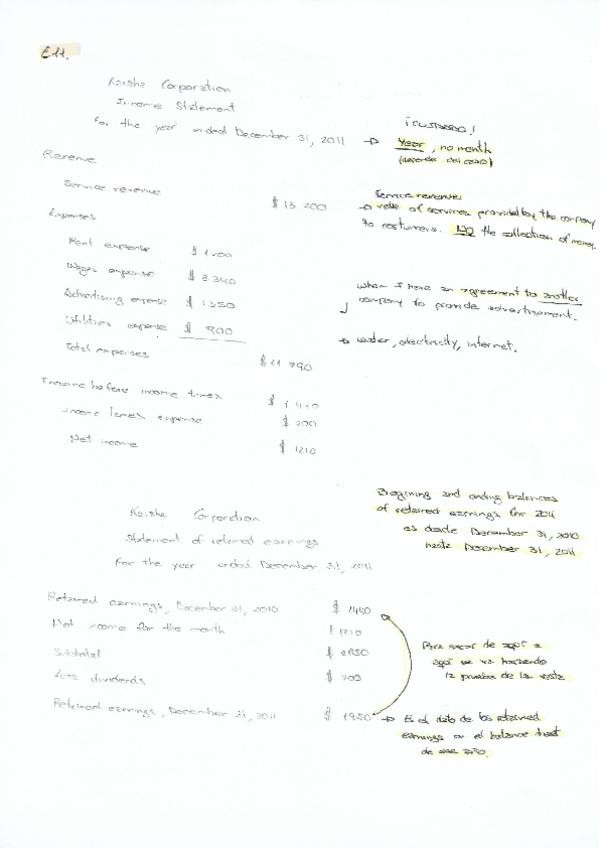 E11.
Keisha Corporation
Income Statement
For the year ended December 31, 2011 → Year, no month
¡CUIDADO!
Revenue
Service revenue $ 13 200
Service revenue:
→ of services provided by the company
to costumers. NO the collection of money.
Expenses
Rent expense $
Wages expense $ 3 340
Advertising expense $ 1350
Utilities expense $ 900
when I have an agreement to another
company to provide advertisement.
→ water, electricity, internet.
Total expenses $ 11 790
Income before income taxes $ 1 410
Income taxes expense $ 200
Net income $ 1210
Keisha Corporation
Statement of retained earnings
For the year ended December 31, 2011
Beginning and ending balances
of retained earnings for 2011
es desde December 31, 2010
hasta December 31, 2011
Retained earnings, December 31, 2010 $ 1440
Net income for the month $ 1210
Subtotal $ 2650
Less dividends $ 700
Retained earnings, December 31, 2011 $ 1950
Para sacar de aquí a
aquí se va haciendo
la prueba de la resta
→ Es el dato de los retained
earnings en el balance sheet
de ese año.